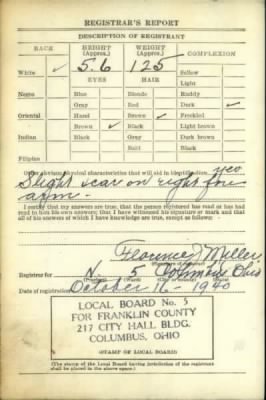 REGISTRAR'S REPORT
DESCRIPTION OF REGISTRANT
RACE HEIGHT (Approx.) WEIGHT (Approx.) COMPLEXION
White ✓ 5.6 125 Sallow
Light
EYES HAIR
Negro Blue Blonde Ruddy
Gray Red Dark ✓
Oriental Hazel Brown ✓ Freckled
Brown ✓ Black Light brown
Indian Black Gray Dark brown
Bald Black
Filipino
Other obvious physical characteristics that will aid in identification
Slight scar on right fore
arm -
I certify that my answers are true; that the person registered has read or has
had read to him his own answers; that I have witnessed his signature or mark and that
all of his answers of which I have knowledge are true, except as follows:
Florence Miller
Registrar for N 5 Columbus Ohio
(Precinct) (Ward) (City or county) (State)
Date of registration October 16 - 1940
LOCAL BOARD No. 5
FOR FRANKLIN COUNTY
217 CITY HALL BLDG.
COLUMBUS, OHIO
(STAMP OF LOCAL BOARD)
(The stamp of the Local Board having jurisdiction of the registrant
shall be placed in the above space.)